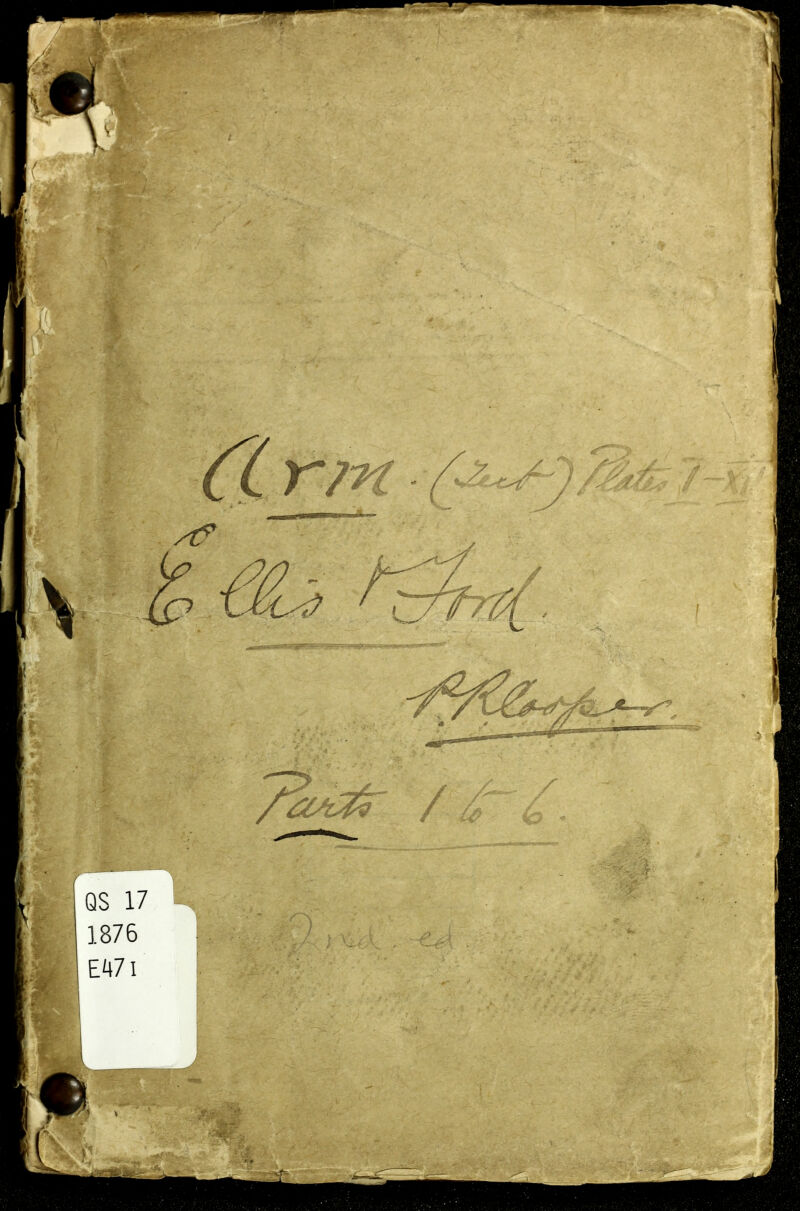 Arm. (Text) Plates I-XII
Ellis & Ford.
P.R. Cooper.
Parts 1 to 6.
2nd. ed
QS 17
1876
E47I